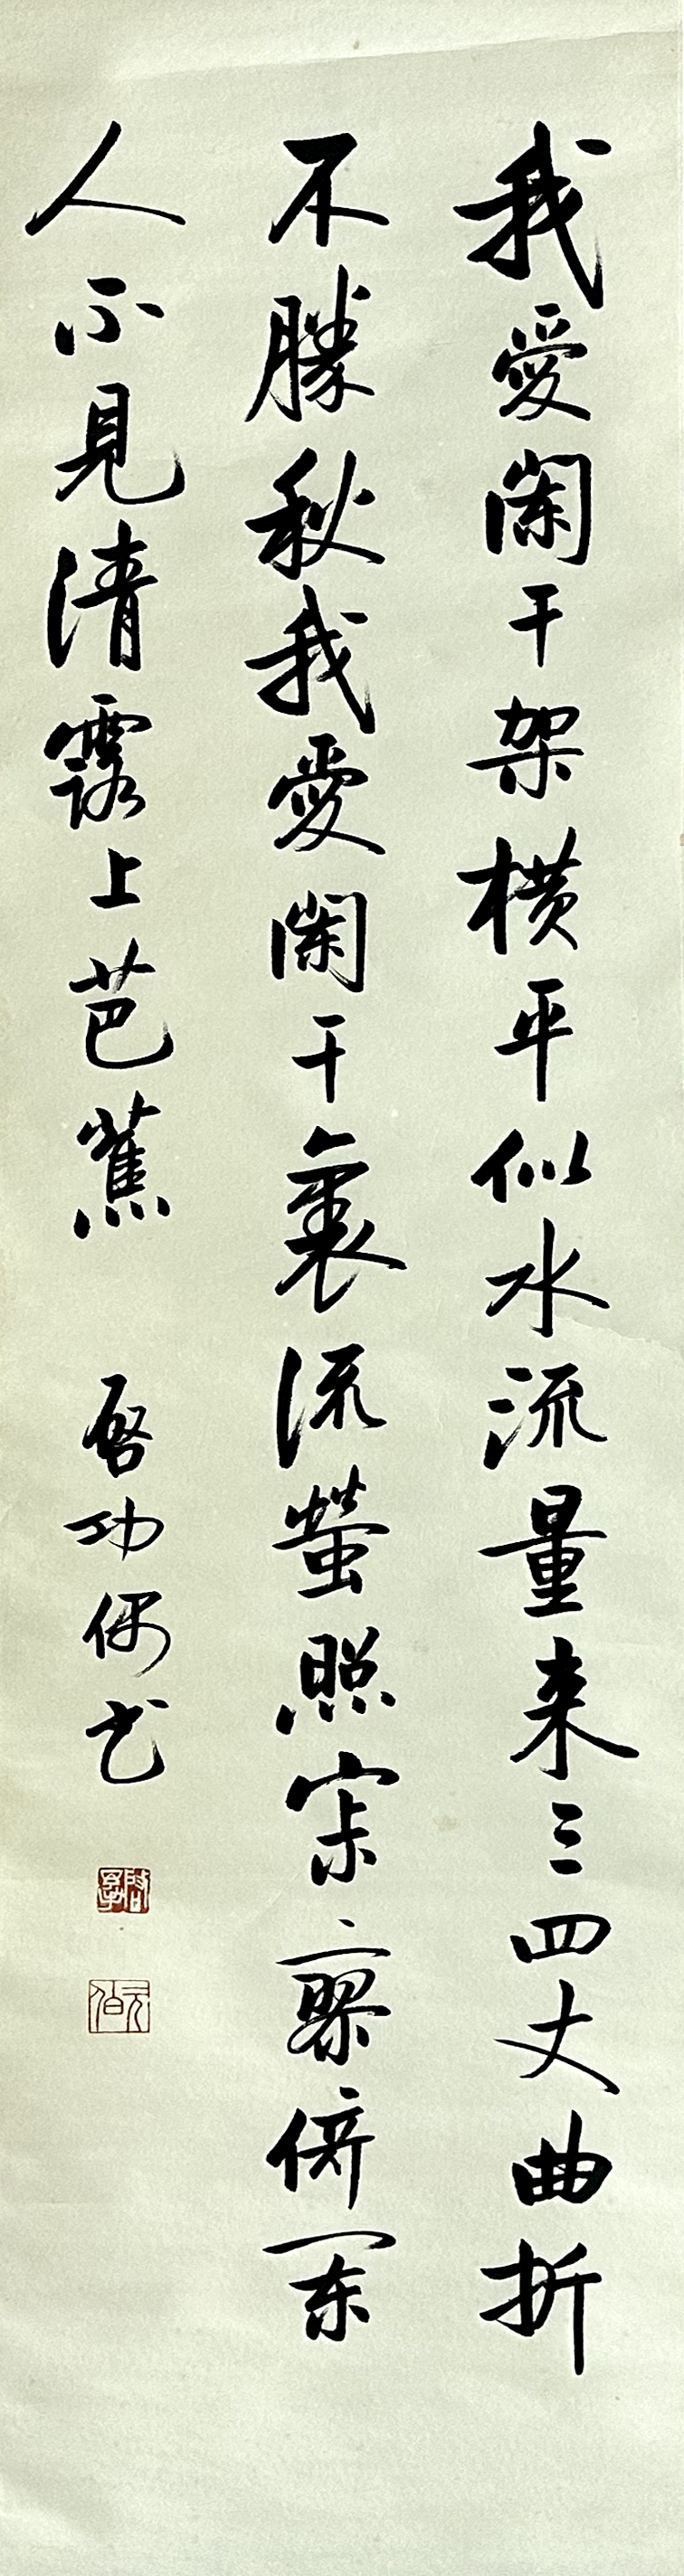 我愛闌干架橫平似水流量来三四丈曲折
不勝秋我愛闌干裏流螢照寂寥倚闌
人不見清露上芭蕉
啓功偶书